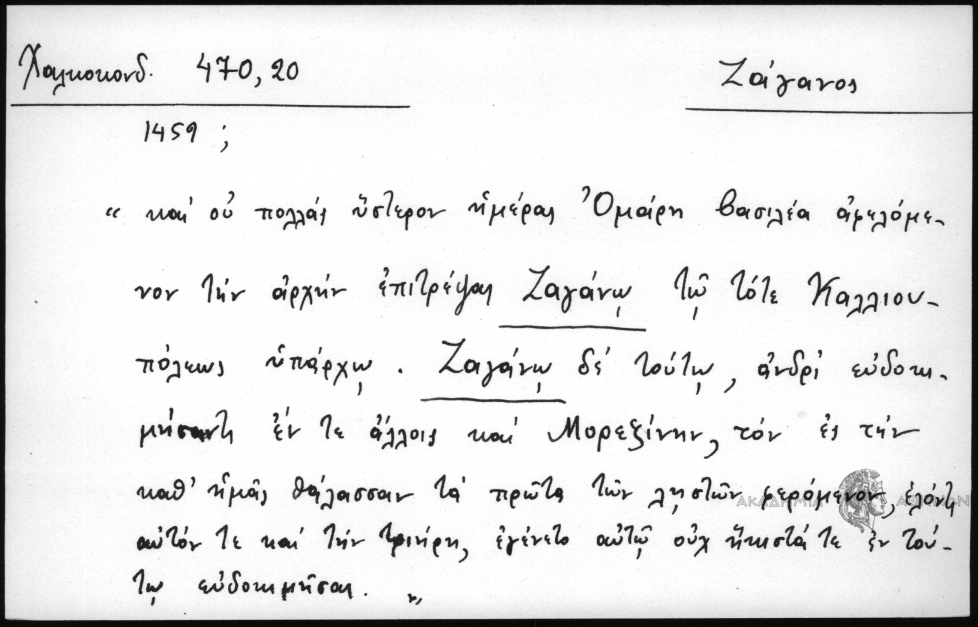 Χαλκοκονδ. 470,20
Ζάγανος
1459 ;
“ καί οὐ πολλάς ὕστερον ἡμέρας Ὀμάρη βασιλέα ἀφελόμε-
νον τήν ἀρχήν ἐπιτρέψαι Ζαγάνῳ τῷ τότε Καλλιου-
πόλεως ὑπάρχῳ . Ζαγάνῳ δέ τούτῳ, ἀνδρί εὐδοκι-
μήσαντι ἐν τε ἄλλοις καί Μορεξίνην, τόν ἐς τήν
καθ' ἡμᾶς θάλασσαν τά πρῶτα τῶν λῃστῶν φερόμενον, ἑλόντι
αὐτόν τε καί τήν τριήρη, ἐγένετο αὐτῷ οὐχ ἥκιστά τε ἐν τού-
τῳ εὐδοκιμῆσαι. „
ΑΚΑΔΗΜΙΑ ΑΘΗΝΩΝ